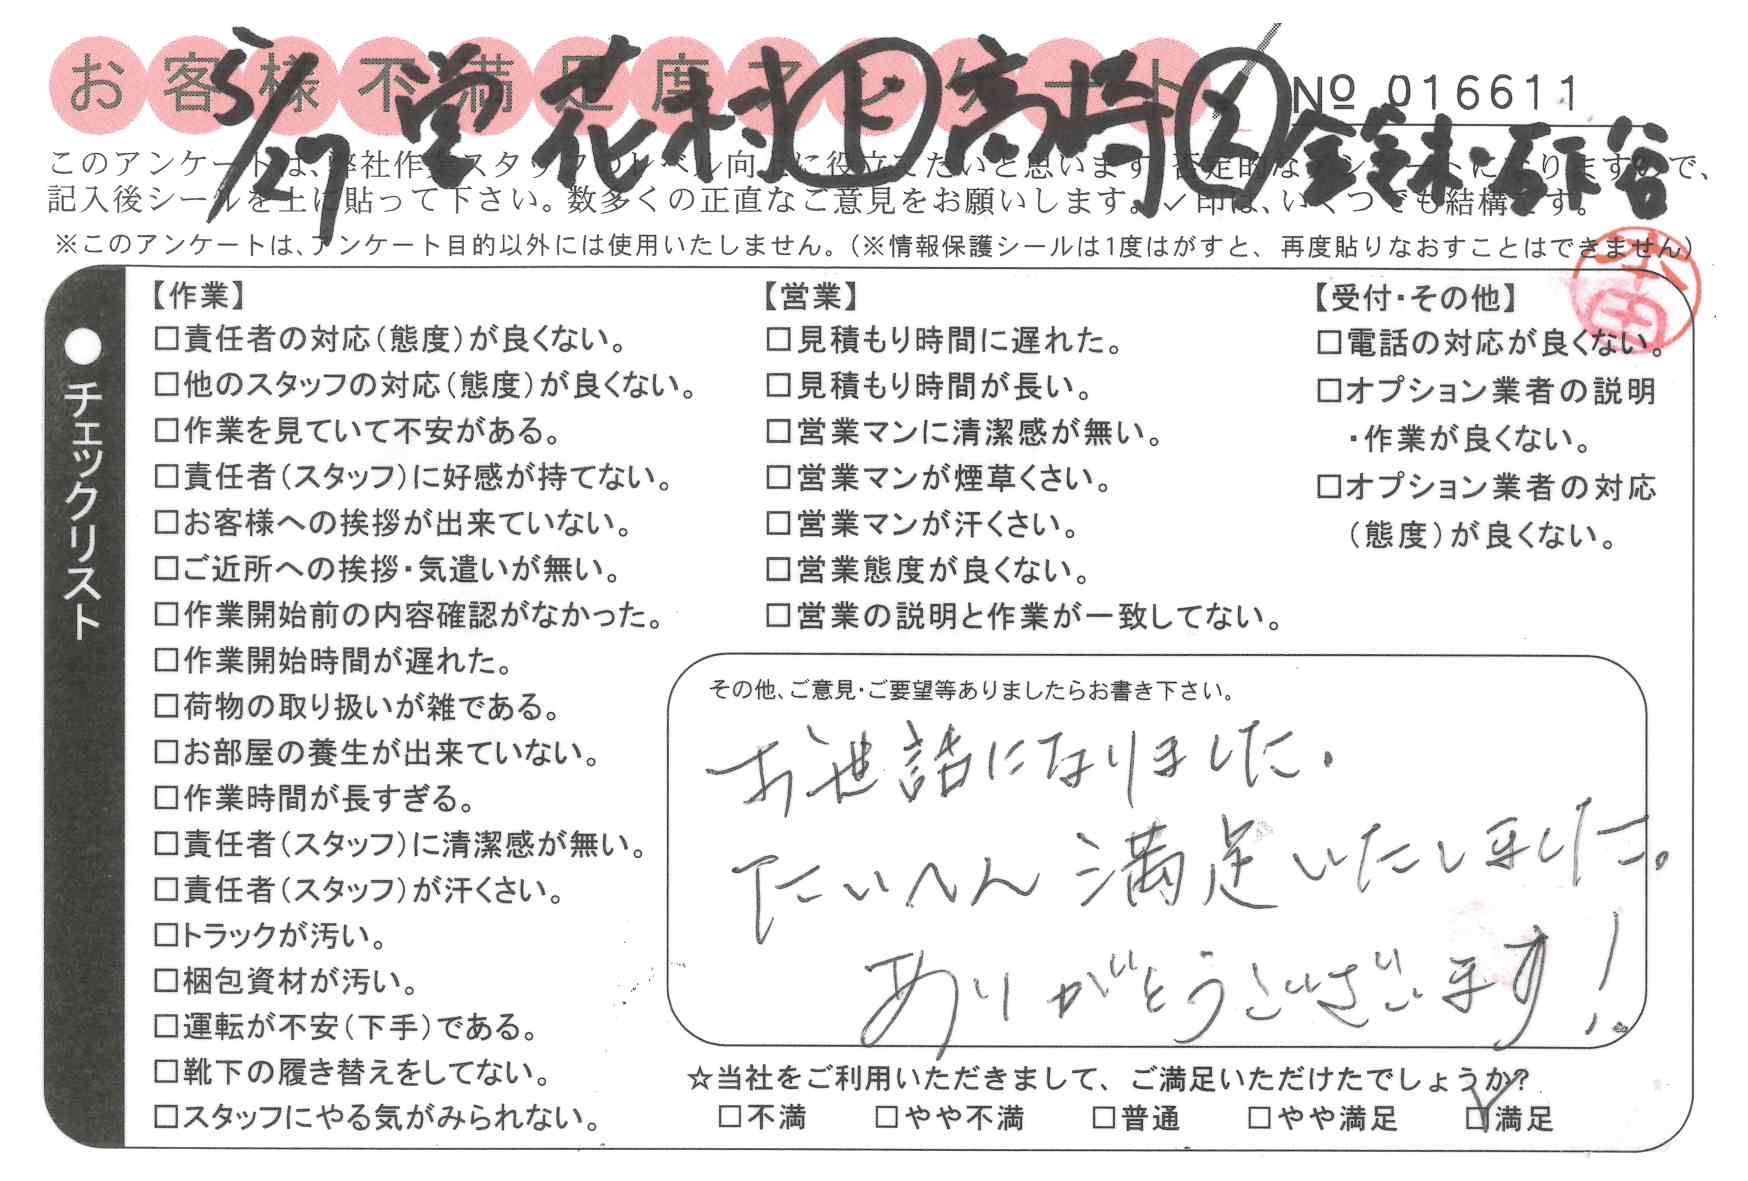 お客様不満足度アンケート
5/27 営 花村 下 高崎 込 金鉢・砺谷
№ 016611
このアンケートは、弊社作業スタッフのレベル向上に役立てたいと思います。否定的なアンケートになりますので、
記入後シールを上に貼って下さい。数多くの正直なご意見をお願いします。✓印は、いくつでも結構です。
※このアンケートは、アンケート目的以外には使用いたしません。(※情報保護シールは1度はがすと、再度貼りなおすことはできません)
チェックリスト
【作業】
□責任者の対応(態度)が良くない。
□他のスタッフの対応(態度)が良くない。
□作業を見ていて不安がある。
□責任者(スタッフ)に好感が持てない。
□お客様への挨拶が出来ていない。
□ご近所への挨拶・気遣いが無い。
□作業開始前の内容確認がなかった。
□作業開始時間が遅れた。
□荷物の取り扱いが雑である。
□お部屋の養生が出来ていない。
□作業時間が長すぎる。
□責任者(スタッフ)に清潔感が無い。
□責任者(スタッフ)が汗くさい。
□トラックが汚い。
□梱包資材が汚い。
□運転が不安(下手)である。
□靴下の履き替えをしてない。
□スタッフにやる気がみられない。
【営業】
□見積もり時間に遅れた。
□見積もり時間が長い。
□営業マンに清潔感が無い。
□営業マンが煙草くさい。
□営業マンが汗くさい。
□営業態度が良くない。
□営業の説明と作業が一致してない。
【受付・その他】
□電話の対応が良くない。
□オプション業者の説明
・作業が良くない。
□オプション業者の対応
(態度)が良くない。
その他、ご意見・ご要望等ありましたらお書き下さい。
お世話になりました.
たいへん満足いたしました。
ありがとうございます!
☆当社をご利用いただきまして、ご満足いただけたでしょうか?
□不満 □やや不満 □普通 □やや満足 ☑満足